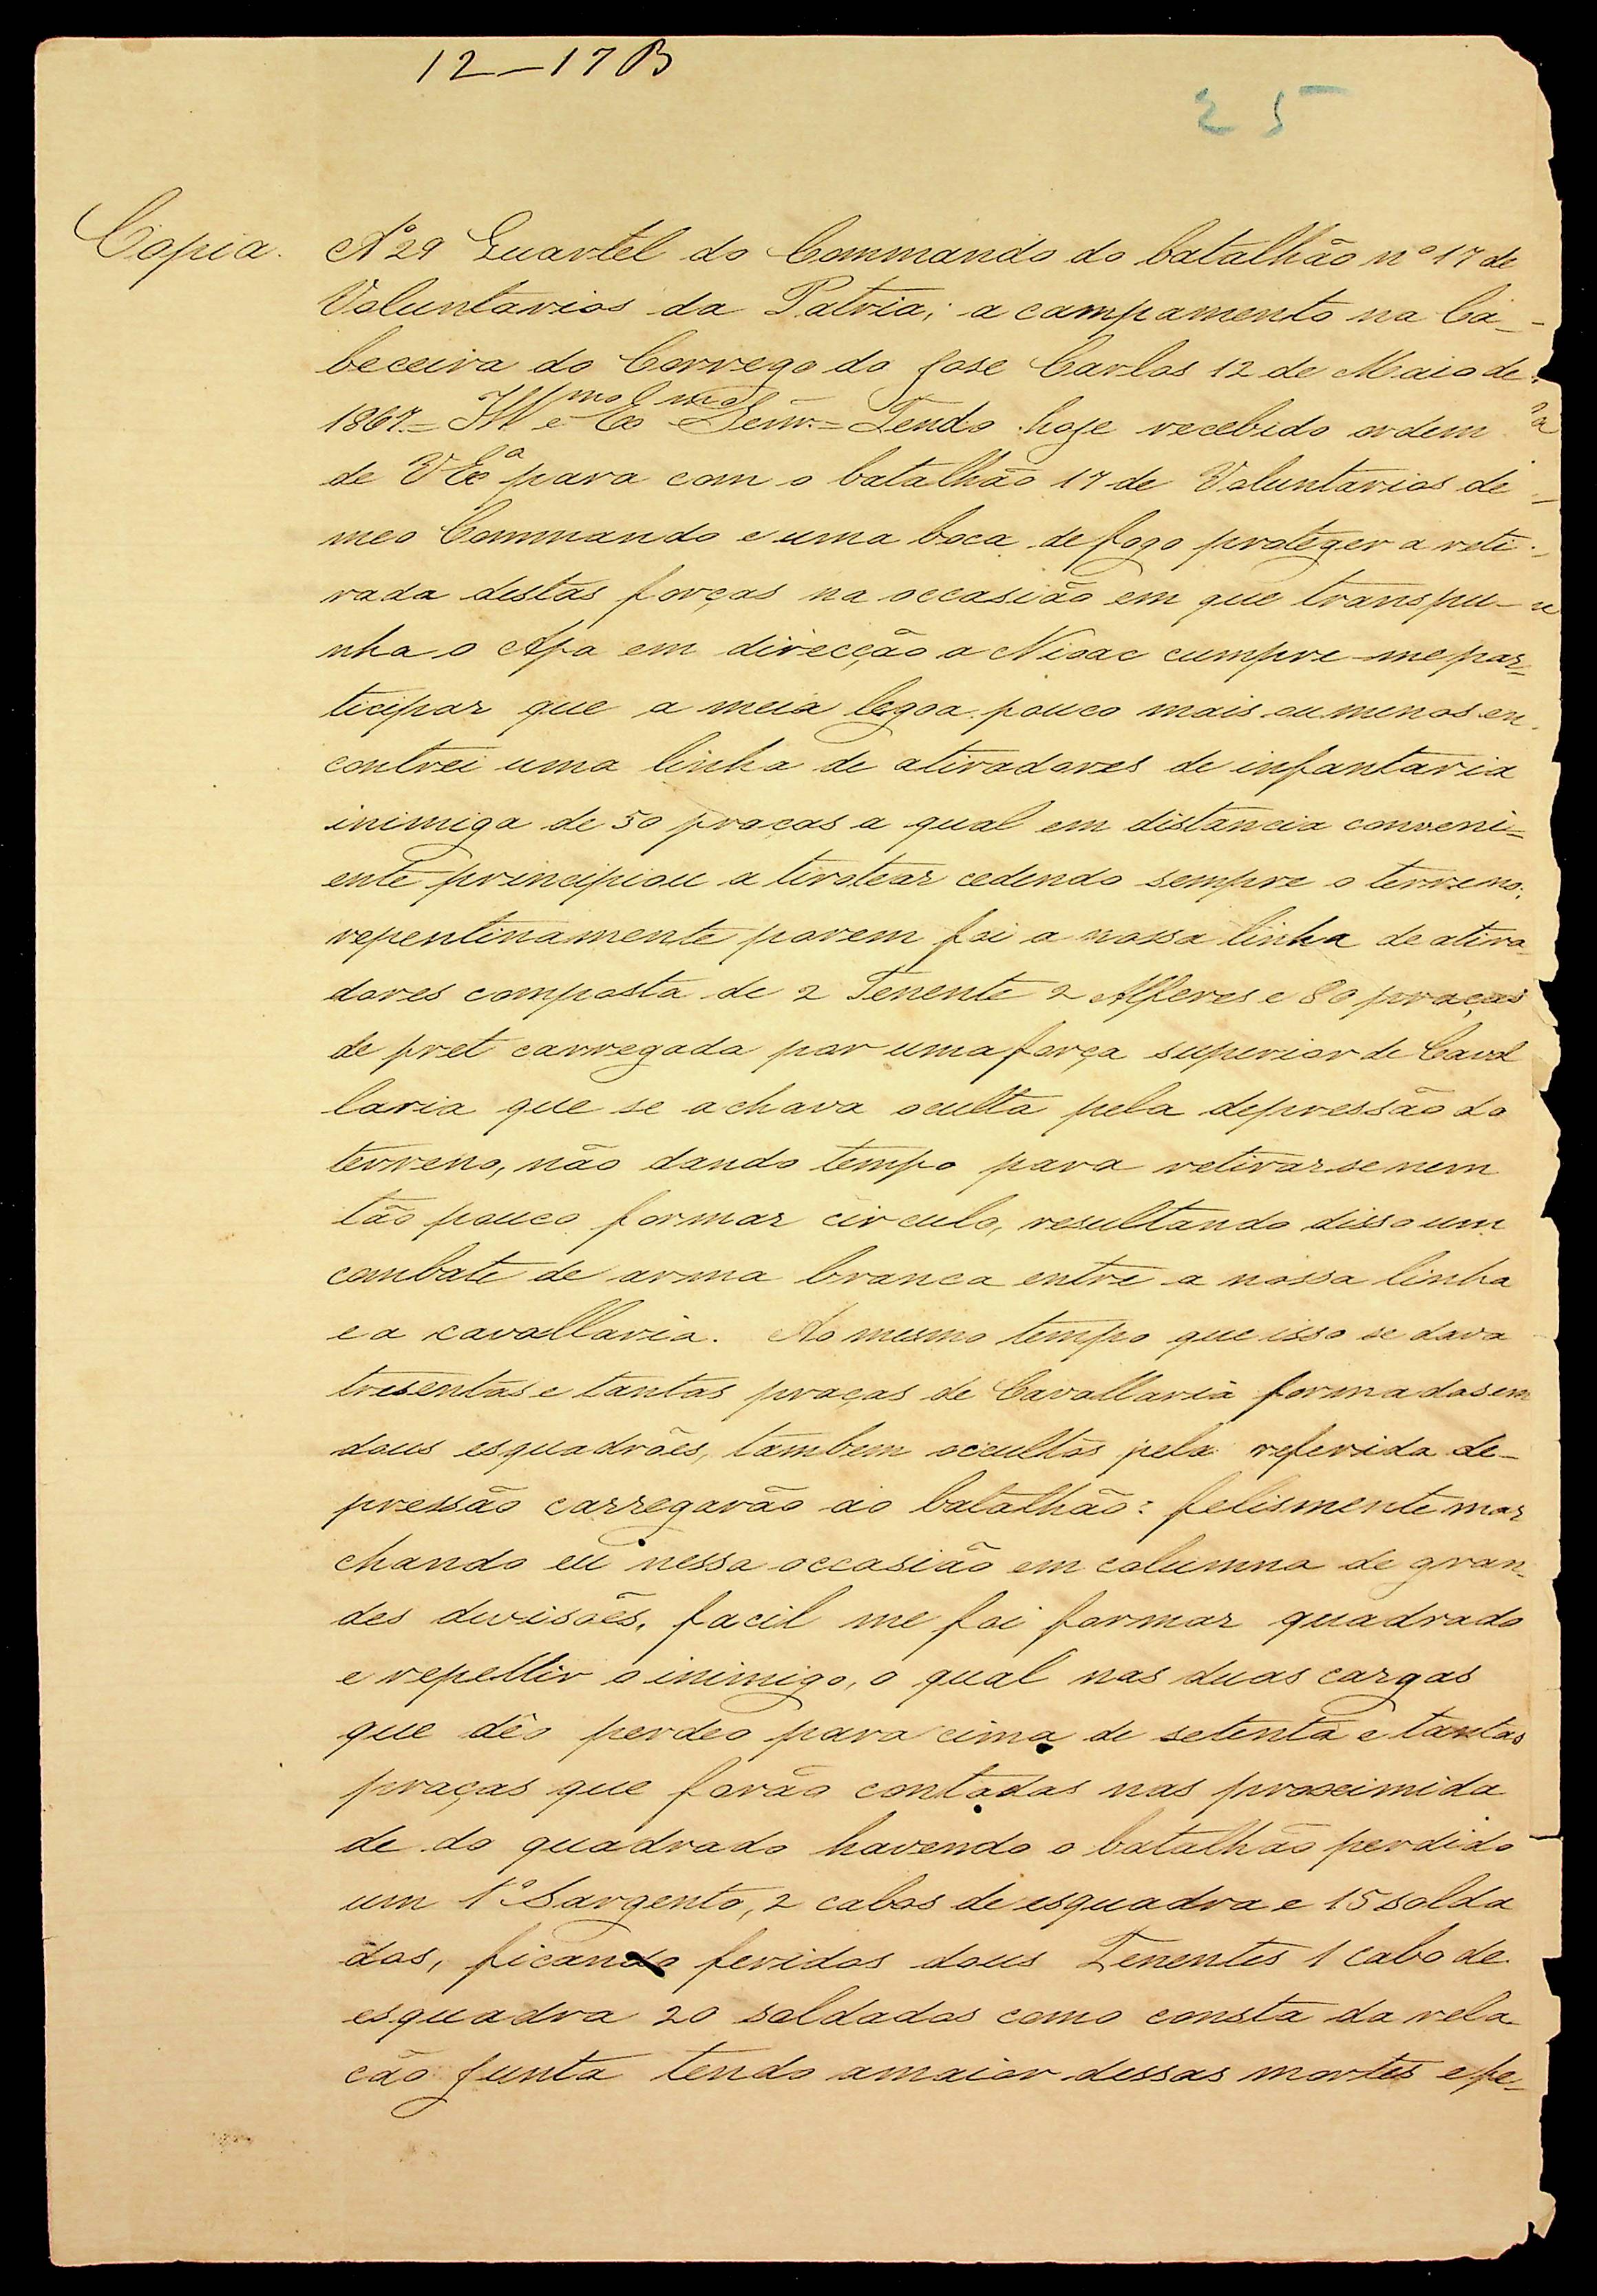 12-17B
25
Copia.
Nº 29 Quartel do Commando do batalhão nº 17 de
Voluntarios da Patria; acampamento na Ca-
beceira do Corrego do José Carlos 12 de Maio de
1867.= Illmo e Exmo Senr.= Tendo hoje recebido ordem
de V Exª para com o batalhão 17 de Voluntarios de
meo Commando e uma boca de fogo proteger a reti-
rada destas forças na occasião em que transpu-
nha o Apa em direcção a Nioac cumpre-me par-
ticipar que a meia legoa pouco mais ou menos en-
contrei uma linha de atiradores de infantaria
inimiga de 50 praças a qual em distancia conveni=
ente principiou a tirotear cedendo sempre o terreno;
repentinamente porem foi a nossa linha de atira-
dores composta de 2 Tenente 2 Alferes e 80 praças
de pret carregada por uma força superior de Caval
laria que se achava oculta pela depressão do
terreno, não dando tempo para retirar se nem
tão pouco formar circulo, resultando disso um
combate de arma branca entre a nossa linha
e a cavallaria. Ao mesmo tempo que isso se dava
tresentas e tantas praças de Cavallaria formadas em
dous esquadrões, tambem occultos pela referida de-
pressão carregarão ao batalhão: felismente mar
chando eu nessa occasião em columna de gran-
des divisões, facil me foi formar quadrado
e repellir o inimigo, o qual nas duas cargas
que dêo perdeo para cima de setenta e tantas
praças que forão contadas nas proximida
de do quadrado havendo o batalhão perdido
um 1º Sargento, 2 cabos de esquadra e 15 solda
dos, ficando feridos dous Tenentes 1 cabo de
esquadra 20 soldados como consta da rela
ção junta tendo a maior dessas mortes e fe-